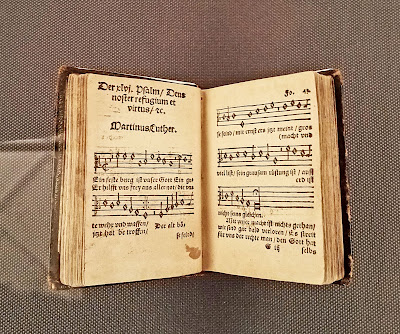 Der xlvj. Psalm/ Deus
noster refugium et
virtus/ ꝛc.
Martinus Luther.
Ein feste burg ist vnser Gott Ein gu
Er hilfft vns frey aus aller not/ die vns
te wehr vnd waffen/ Der alt bö-
jtzt hat be troffen/
se feind/
Fo. 43.
se feind/ mit ernst ers jtzt meint/ gros
macht vnd
viel list/ sein grausam rüstung ist/ auff
erd ist
nicht seins gleichen.
Mit vnser macht ist nichts gethan/
wir sind gar bald verloren/ Es streit
fur vns der rechte man/ den Gott hat
selbs